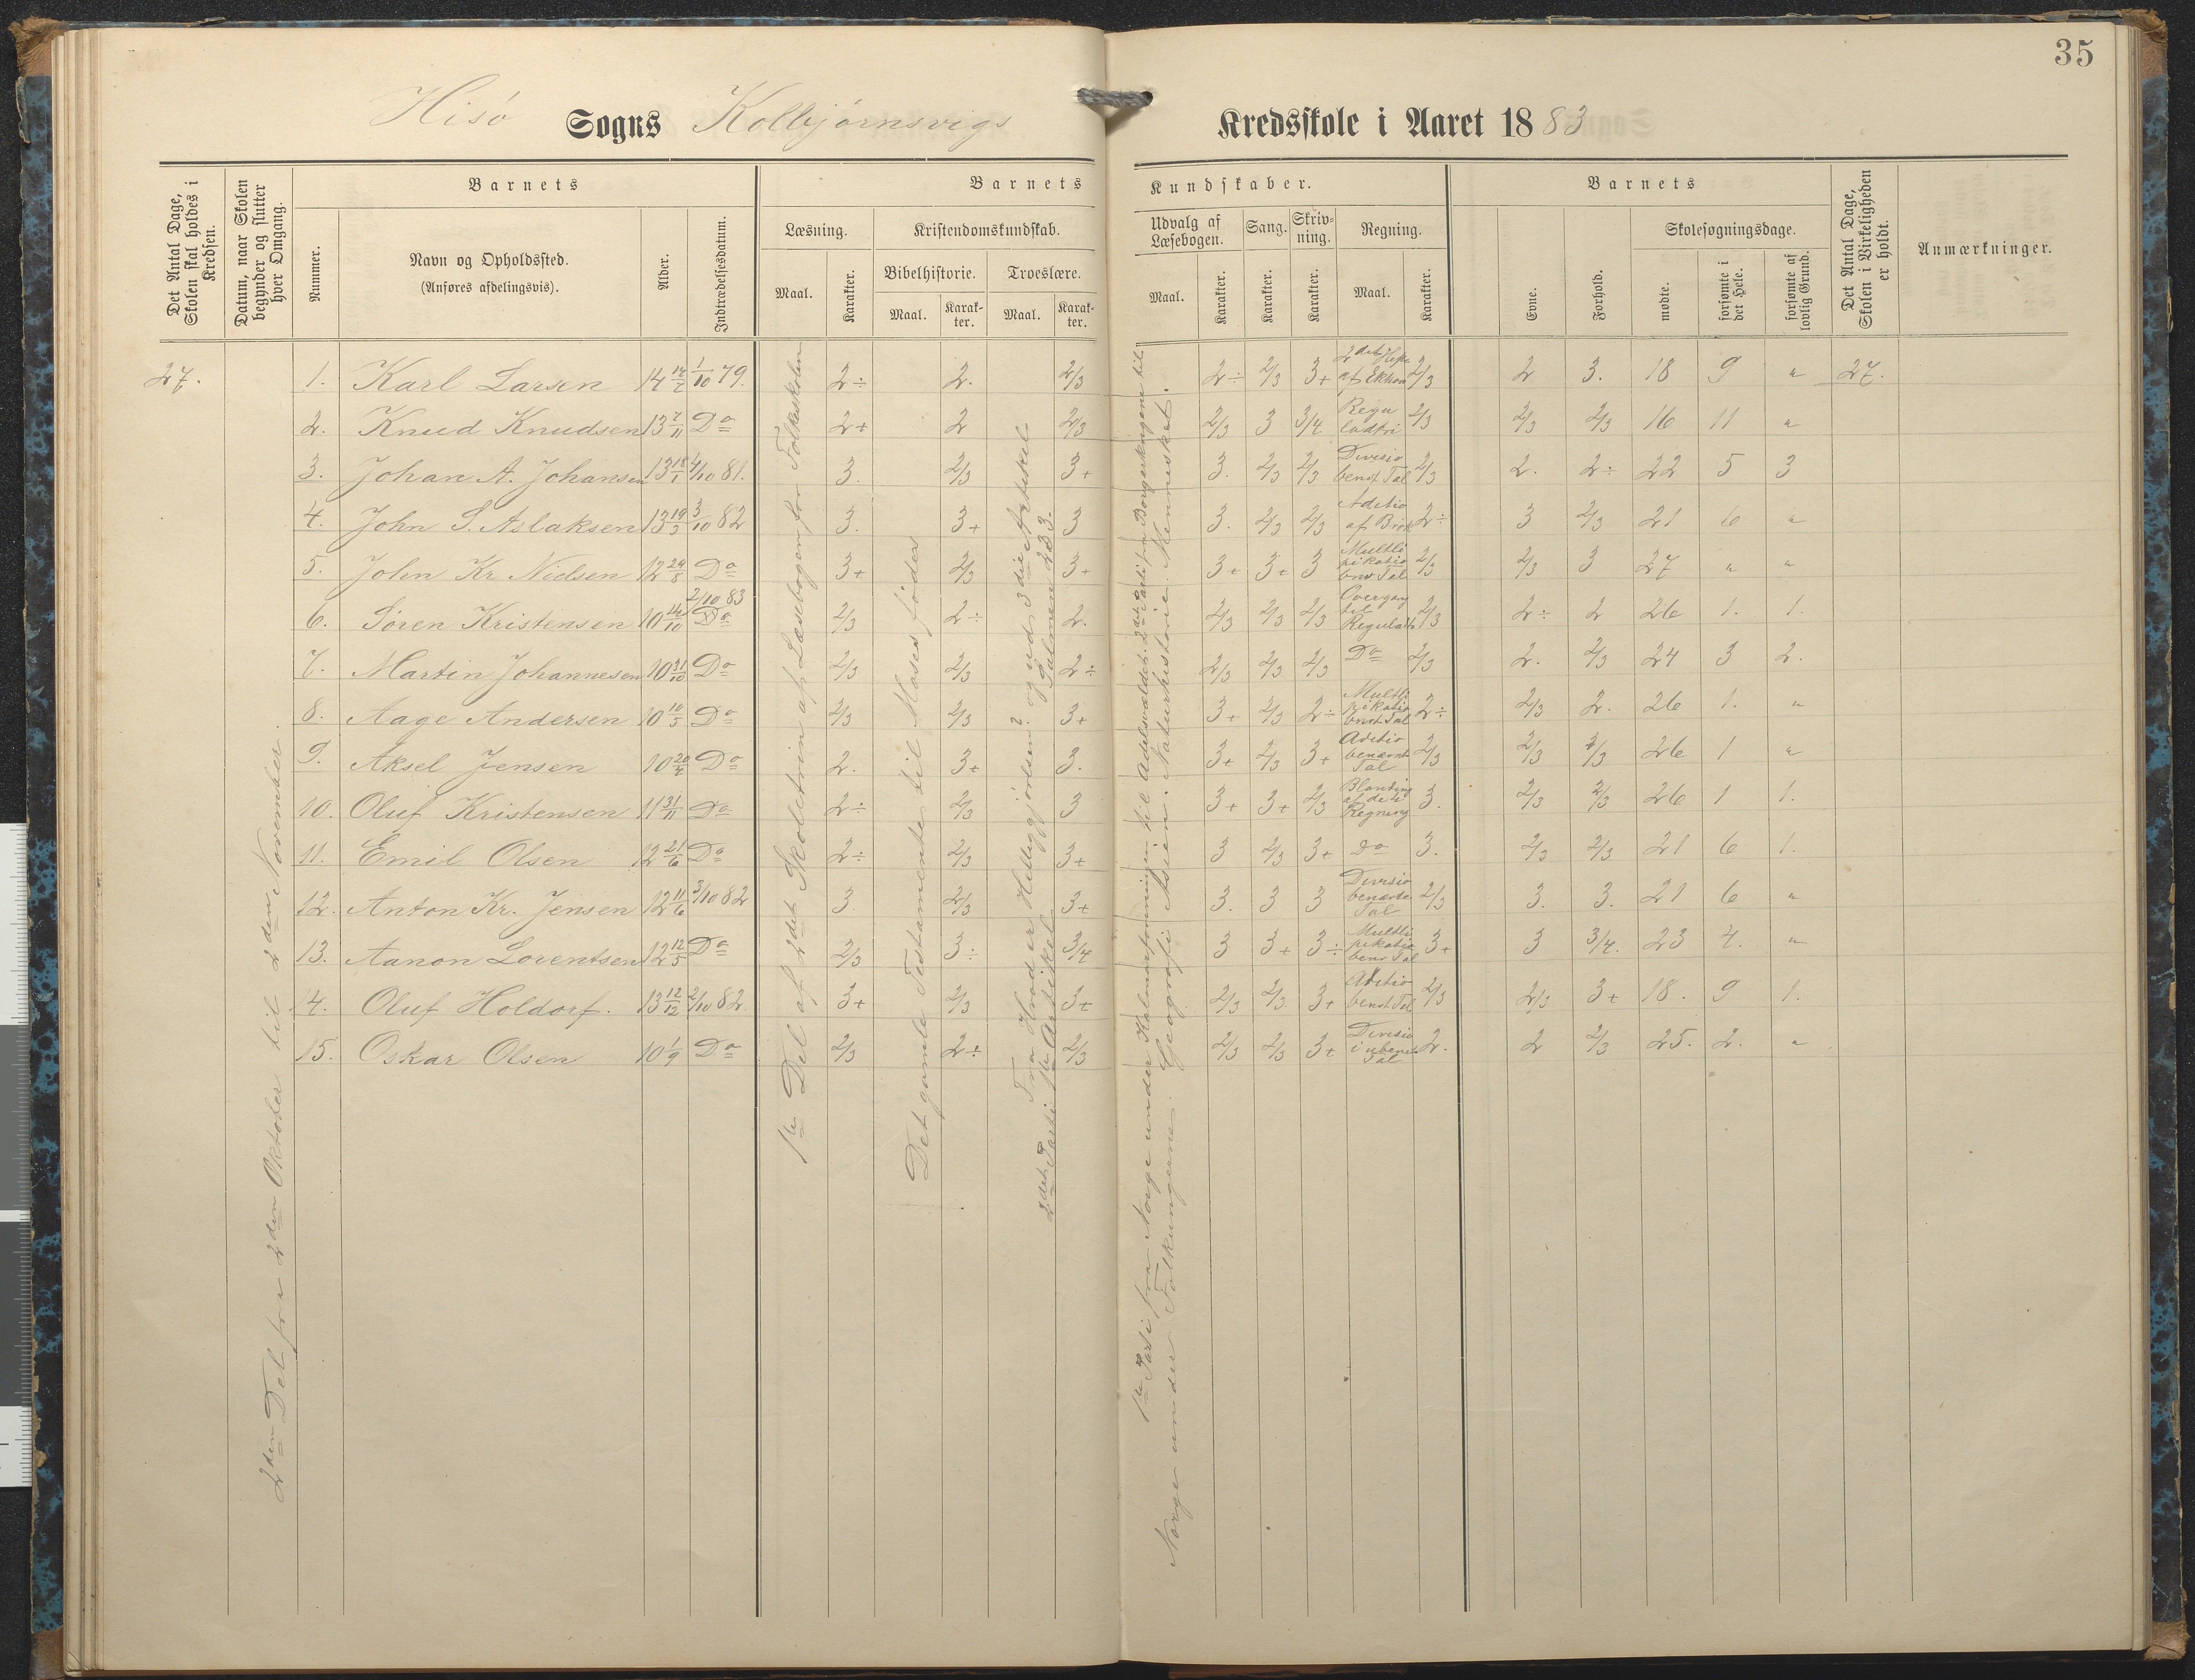 35
Hisö Sogns Kolbjørnsvigs Kredsskole i Aaret 1883
Det Antal Dage, Skolen skal holdes i Kredsen.
Datum, naar Skolen begynder og slutter hver Omgang.
Barnets
Nummer.
Navn og Opholdssted.
(Anføres afdelingsvis).
Alder.
Indtrædelsesdatum.
Barnets Kundskaber.
Læsning.
Maal.
Karakter.
Kristendomskundskab.
Bibelhistorie.
Maal.
Karakter.
Troeslære.
Maal.
Karakter.
Udvalg af Læsebogen.
Maal.
Karakter.
Sang.
Karakter.
Skrivning.
Karakter.
Regning.
Maal.
Karakter.
Barnets
Evne.
Forhold.
Skolesøgningsdage.
mødte.
forsømte i det Hele.
forsømte af lovlig Grund.
Det Antal Dage, Skolen i Virkeligheden er holdt.
Anmærkninger.
27. 1. Karl Larsen 14 1/10 79. 2÷ 2. 2/3 2÷ 2/3 3+ 2/3 2 3. 18 9 " 27.
2. Knud Knudsen 13 7/11 Do 2+ 2 2/3 2/3 3 3/4 Regu ladtri 2/3 2/3 2/3 16 11 "
3. Johan A. Johansen 13 18/1 4/10 81. 3. 2/3 3+ 3. 2/3 2/3 Divisio bent Tal 2/3 2. 2÷ 22 5 3
4. John S. Aslaksen 13 19/3 3/10 82 3. 3+ 3 3. 2/3 2/3 Aditio af Brøk 2÷ 3 2/3 21 6 "
5. John Kr Nielsen 12 29/8 Do 3+ 2/3 3+ 3+ 3+ 3 Multli pikatio bent Tal 2/3 2/3 3 27 " "
6. Søren Kristensen 10 14/10 2/10 83 Do 2/3 2÷ 2. 2/3 2/3 2/3 Overgang til Reguladtri 2/3 2÷ 2 26 1. 1.
7. Martin Johannesen 10 31/10 Do 2/3 2/3 2÷ 2/3 2/3 2/3 Do 2/3 2. 2/3 24 3 2.
8. Aage Andersen 10 10/5 Do 2/3 2/3 3+ 3+ 2/3 2÷ Multli pikatio bent Tal 2÷ 2/3 2. 26 1. "
9. Aksel Jensen 10 20/4 Do 2. 3+ 3. 3+ 2/3 3+ Aditio benævnt Tal 2/3 2/3 2/3 26 1 "
10. Oluf Kristensen 11 31/11 Do 2÷ 2/3 3 3+ 3+ 2/3 Regning 3. 2/3 2/3 26 1 1.
11. Emil Olsen 12 21/6 Do 2÷ 2/3 3+ 3 2/3 3+ Do 3. 2/3 2/3 21 6 1.
12. Anton Kr. Jensen 12 11/6 3/10 82 3. 2/3 3+ 3. 3 3 Divisio benævte Tal 2/3 3. 3. 21 6 "
13. Aanon Lorentsen 12 12/5 Do 2/3 3÷ 3/4 3 3+ 3÷ Multli pikatio benv Tal 3+ 3 3/4. 23 4. "
14. Oluf Holdorf. 13 12/12 2/10 82. 3+ 2/3 3+ 2/3 2/3 3+ Aditio benvt Tal 2/3 2/3 3+ 18. 9 1.
15. Oskar Olsen 10 1/9 Do 2/3 2÷ 2/3 2/3 2/3 3+ Divisio i ubenæv Tal 2. 2 2/3 25. 2. "
2den Del fra 2den Oktober til 2den November.
1ste Del af 2det Skoletrin af Læsebogen for Folkeskolen
Det gamle Testamente til Moses fødes
Fra Hvad er Helliggjørelsen? og ud 3die Artikel
2det Parti 1ste Artikel Salmen 233.
1ste Parti fra Norge under Kalmarforeningen til Adelsvældet. 2det Parti fra Borgerkrigene til
Norge under Folkungerne. Geografi Asien. Naturhistorie. Mennesket.